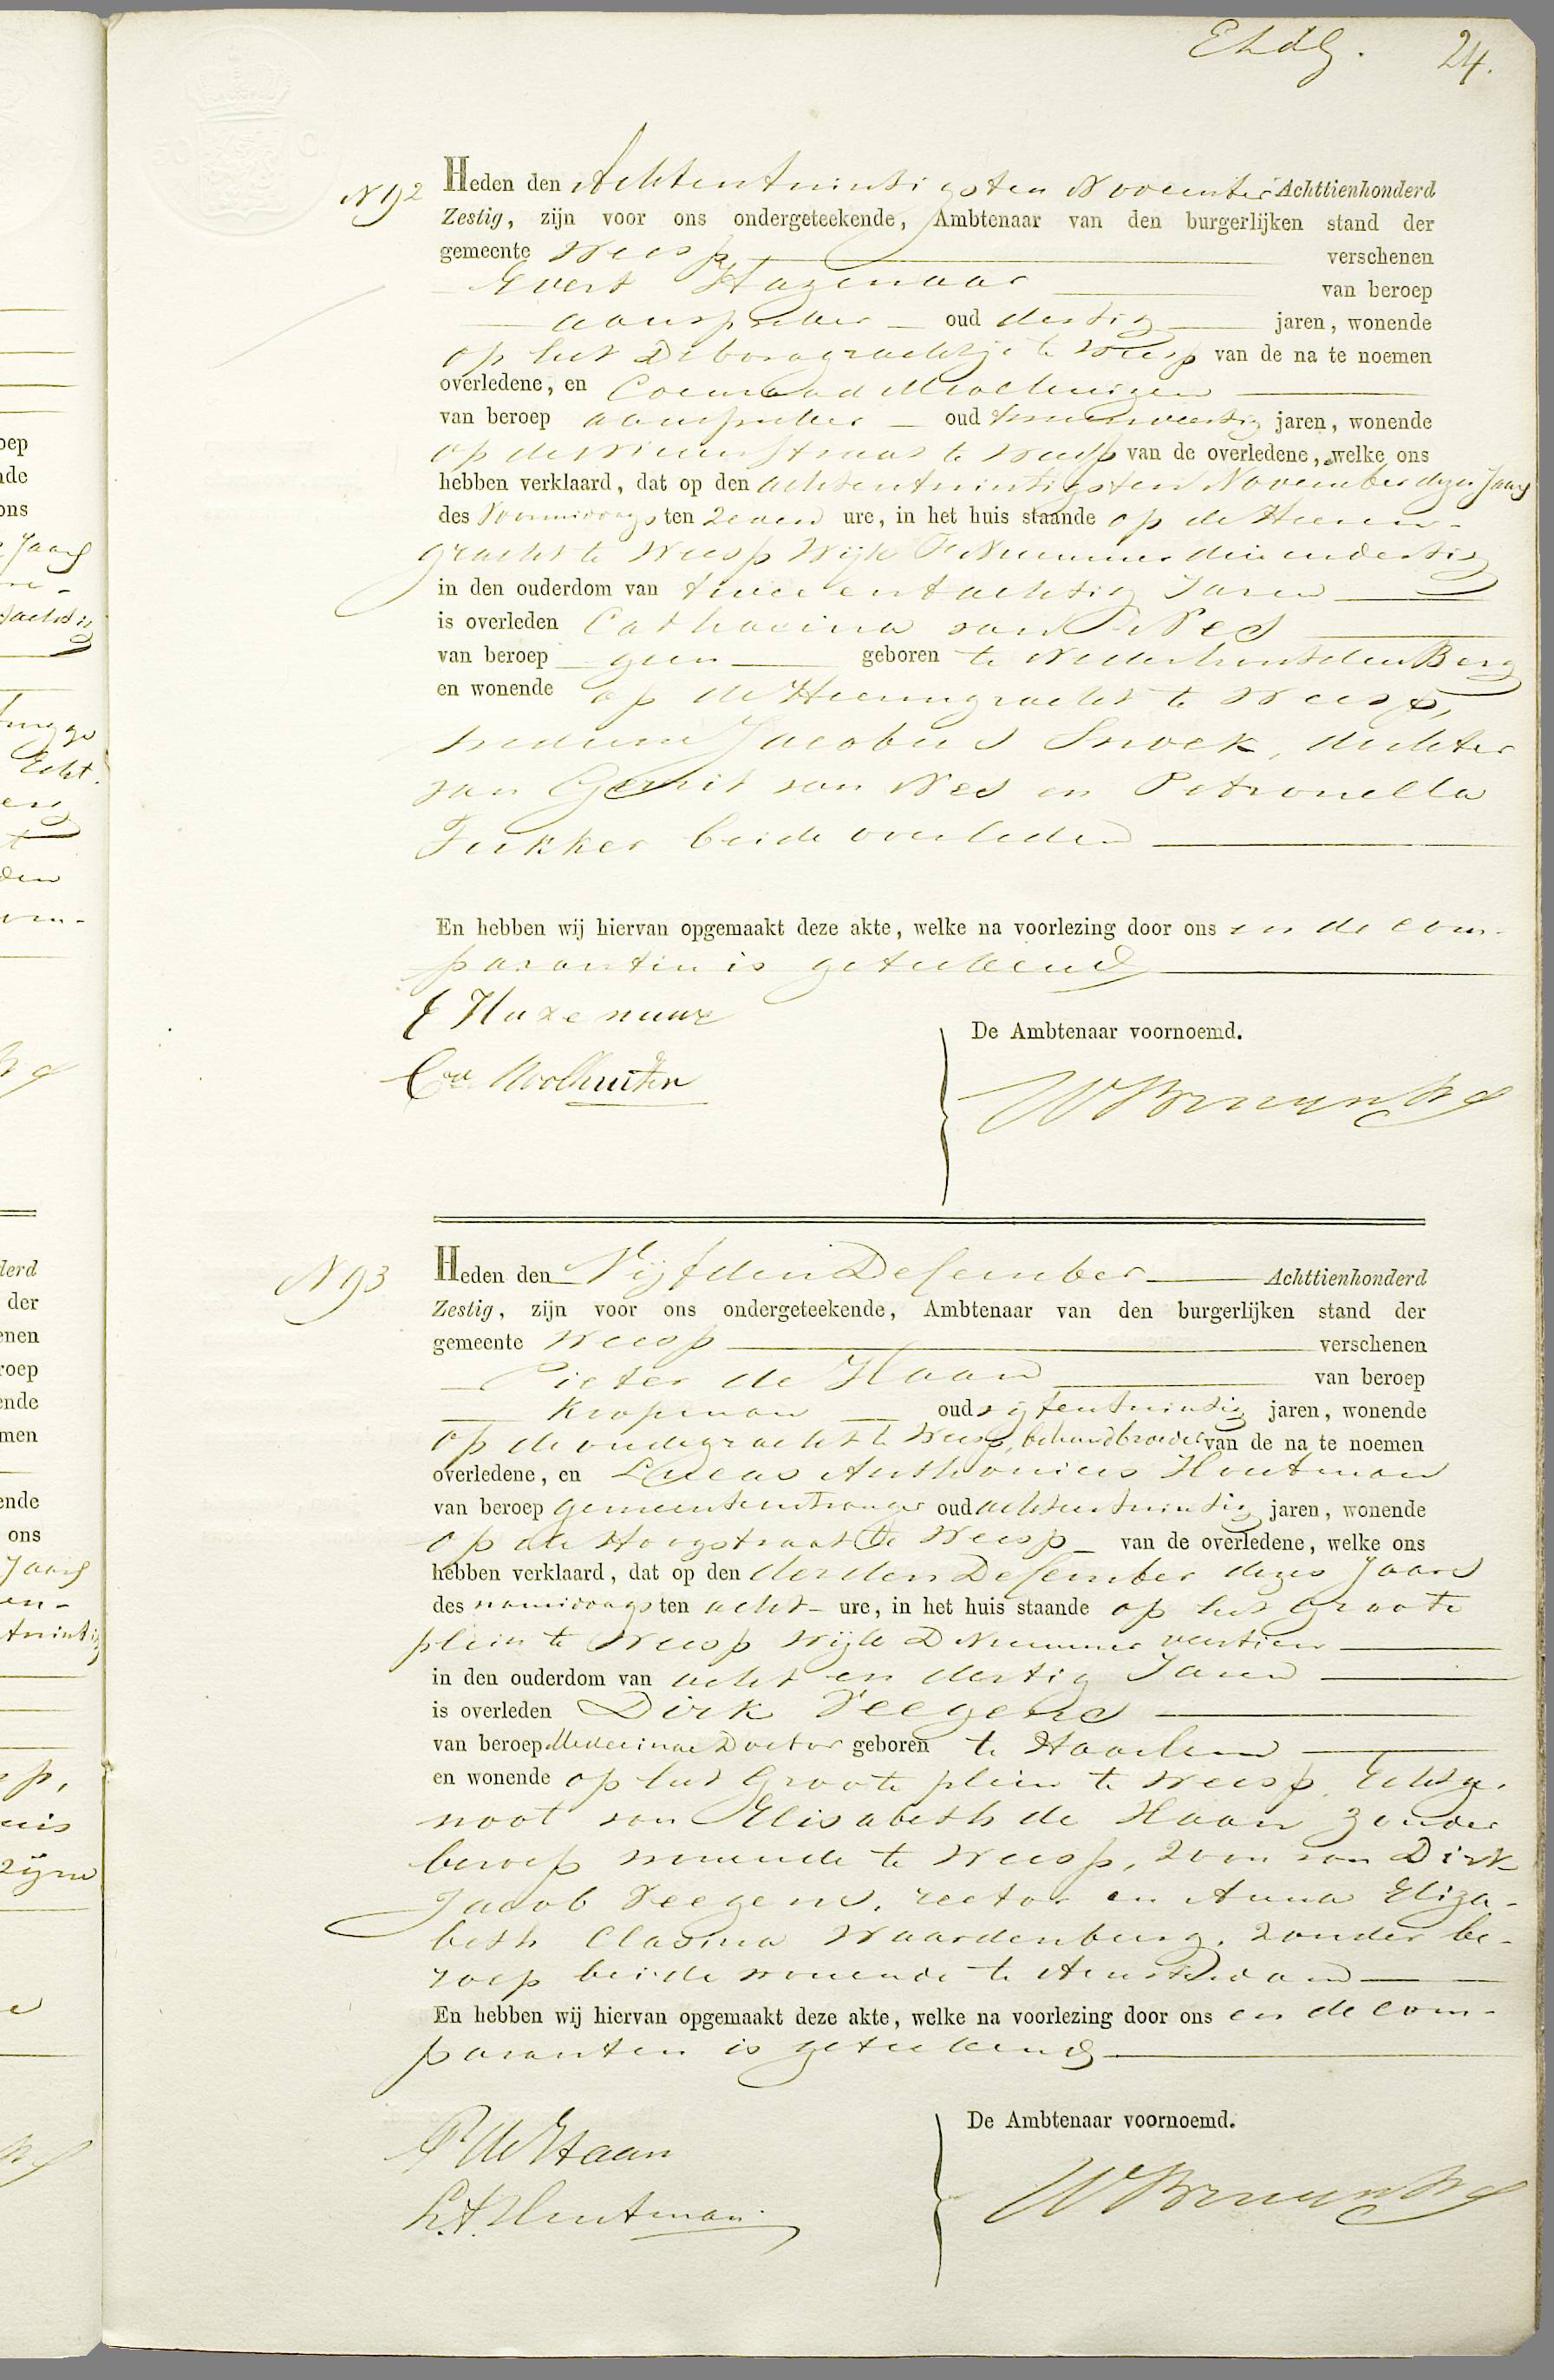 24.
N 92 Heden den Achtentwintigsten November Achttienhonderd
Zestig, zijn voor ons ondergeteekende, Ambtenaar van den burgerlijken stand der
gemeente Weesp verschenen
Evert Hazenaar van beroep
aanspreker oud dertig jaren, wonende
op het te Weesp van de na te noemen
overledene, en Coenraad
van beroep aanspreker oud jaren, wonende
op de Nieuwstraat te Weesp van de overledene, welke ons
hebben verklaard, dat op den achtentwintigsten November dezes Jaars
des Voormiddags ten Zeven ure, in het huis staande op de Heeren-
gracht te Weesp Wijk Nummer drie en dertig
in den ouderdom van twee en tachtig Jaren
is overleden Catharina van Nes
van beroep geen geboren te Nederhorst den Berg
en wonende op de Heerengracht te Weesp,
weduwe Jacobus Snoek, dochter
van Gerrit van Nes en Petronella
Fukker beide overleden
En hebben wij hiervan opgemaakt deze akte, welke na voorlezing door ons en de com-
paranten is geteekend
E Hazenaar
De Ambtenaar voornoemd.
N 93 Heden den Vijfden December Achttienhonderd
Zestig, zijn voor ons ondergeteekende, Ambtenaar van den burgerlijken stand der
gemeente Weesp verschenen
Pieter de Haan van beroep
Koopman oud vijfentwintig jaren, wonende
op de oudegracht te Weesp, behuwdbroeder van de na te noemen
overledene, en Lucas Anthonius Houtman
van beroep gemeenteontvanger oud achtentwintig jaren, wonende
op de Hoogstraat te Weesp van de overledene, welke ons
hebben verklaard, dat op den derden December dezes Jaars
des namiddags ten acht ure, in het huis staande op het Groote
plein te Weesp Wijk D Nummer veertien
in den ouderdom van acht en dertig Jaren
is overleden Dirk Veegens
van beroep Medicinae Doctor geboren te Haarlem
en wonende op het Groote plein te Weesp, Echtge-
noot van Elisabeth de Haan zonder
beroep wonende te Weesp, Zoon van Dirk
Jacob Veegens, rector en Anna Eliza-
beth Clasina Waardenburg, zonder be-
roep beide wonende te Amsterdam
En hebben wij hiervan opgemaakt deze akte, welke na voorlezing door ons en de com-
paranten is geteekend
De Ambtenaar voornoemd.
P de Haan
L.A. Houtman